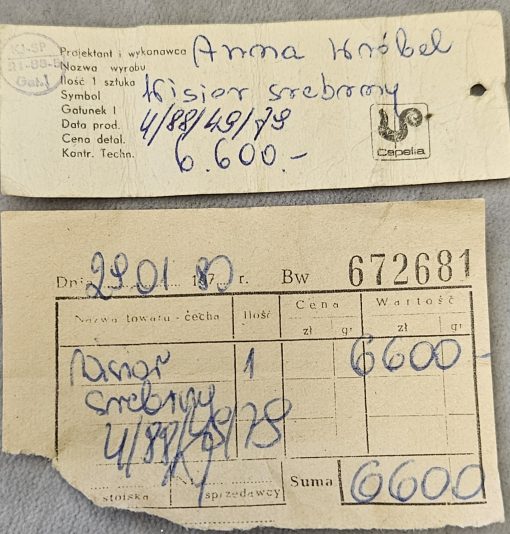 KJ-SP
21-88-5
Gat.I
Projektant i wykonawca Anna Wróbel
Nazwa wyrobu
Ilość 1 sztuka Wisior srebrny
Symbol
Gatunek I 4/88/49/79
Data prod.
Cena detal. 6.600.-
Kontr. Techn.
Cepelia
Dnia 29.01 1980 r. Bw 672681
Nazwa towaru - cecha Ilość Cena Wartość
zł gr zł gr
Wisior 1 6600-
srebrny
4/88/49/79
stoiska sprzedawcy Suma 6600